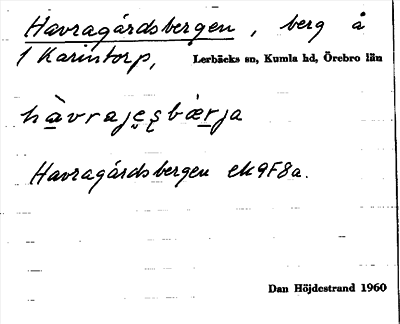 Havragårdsbergen, berg å
1 Karintorp, Lerbäcks sn, Kumla hd, Örebro län
hàvrajęs̨bǽrja
Havragårdsbergen ek9F8a.
Dan Höjdestrand 1960